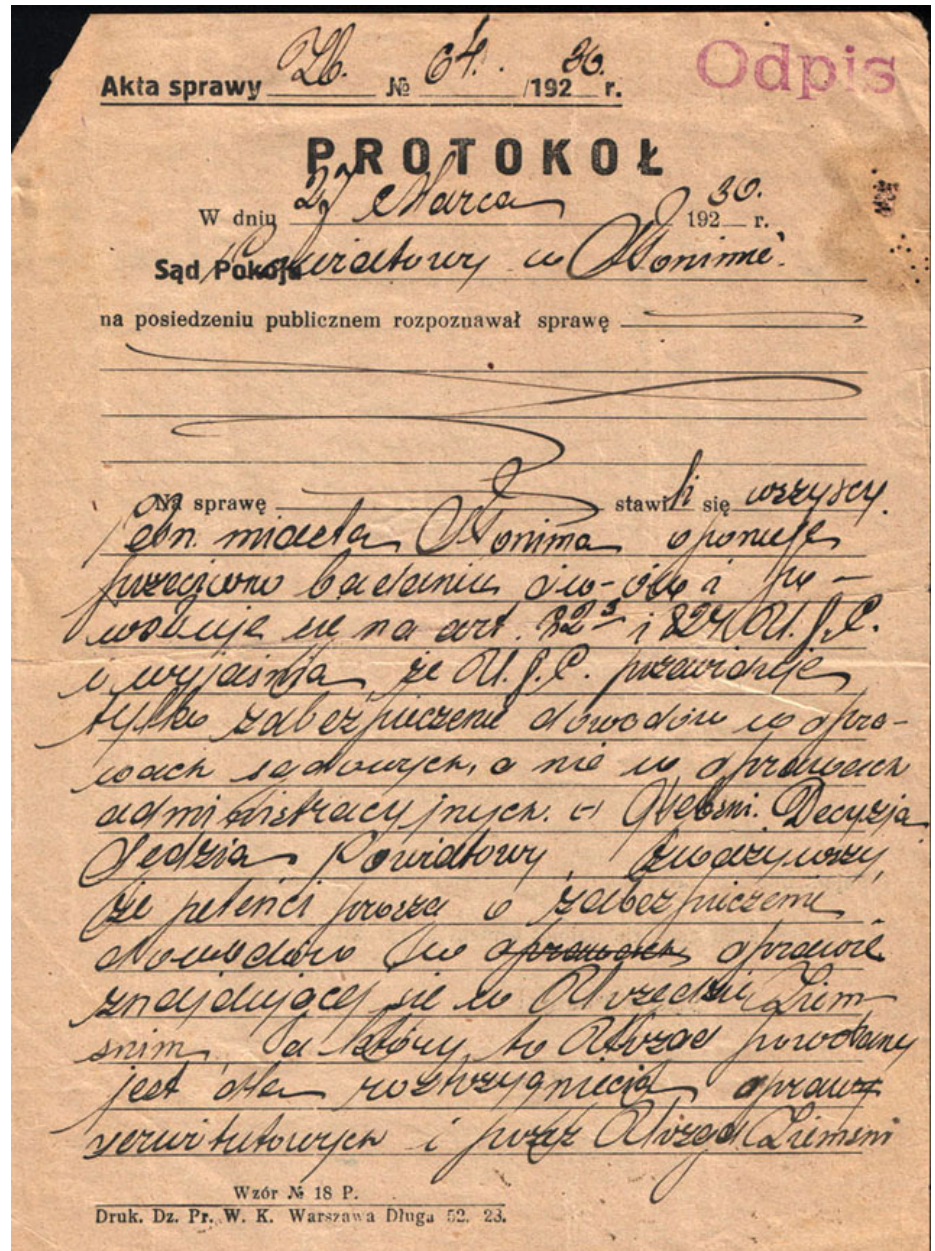 Odpis
Akta sprawy Zb. № 64. /1930 r.
PROTOKOŁ
W dniu 27 Marca 1930. r.
Sąd Pokoju Powiatowy w Słonimie
na posiedzeniu publicznem rozpoznawał sprawę
Na sprawę stawili się wszyscy.
Pełn. miasta Słonima oponuje
przeciwno badaniu św-ów i po-
wołuje się na art. 82³ i 824 U.P.C.
i wyjaśnia, że U.P.C. przewiduje
tylko zabezpieczenie dowodów w spra-
wach sądowych, a nie w sprawach
administracyjnych. Decyzja
Sędzia Powiatowy, zważywszy,
że petenci proszą o zabezpieczenie
dowodów w sprawach sprawie
znajdującej się w Urzędzie Ziem-
skim, a który to Urząd powołany
jest dla rozstrzygnięcia spraw
serwitutowych i przez Urząd Ziemski
Wzór № 18 P.
Druk. Dz. Pr. W. K. Warszawa Długa 52. 23.